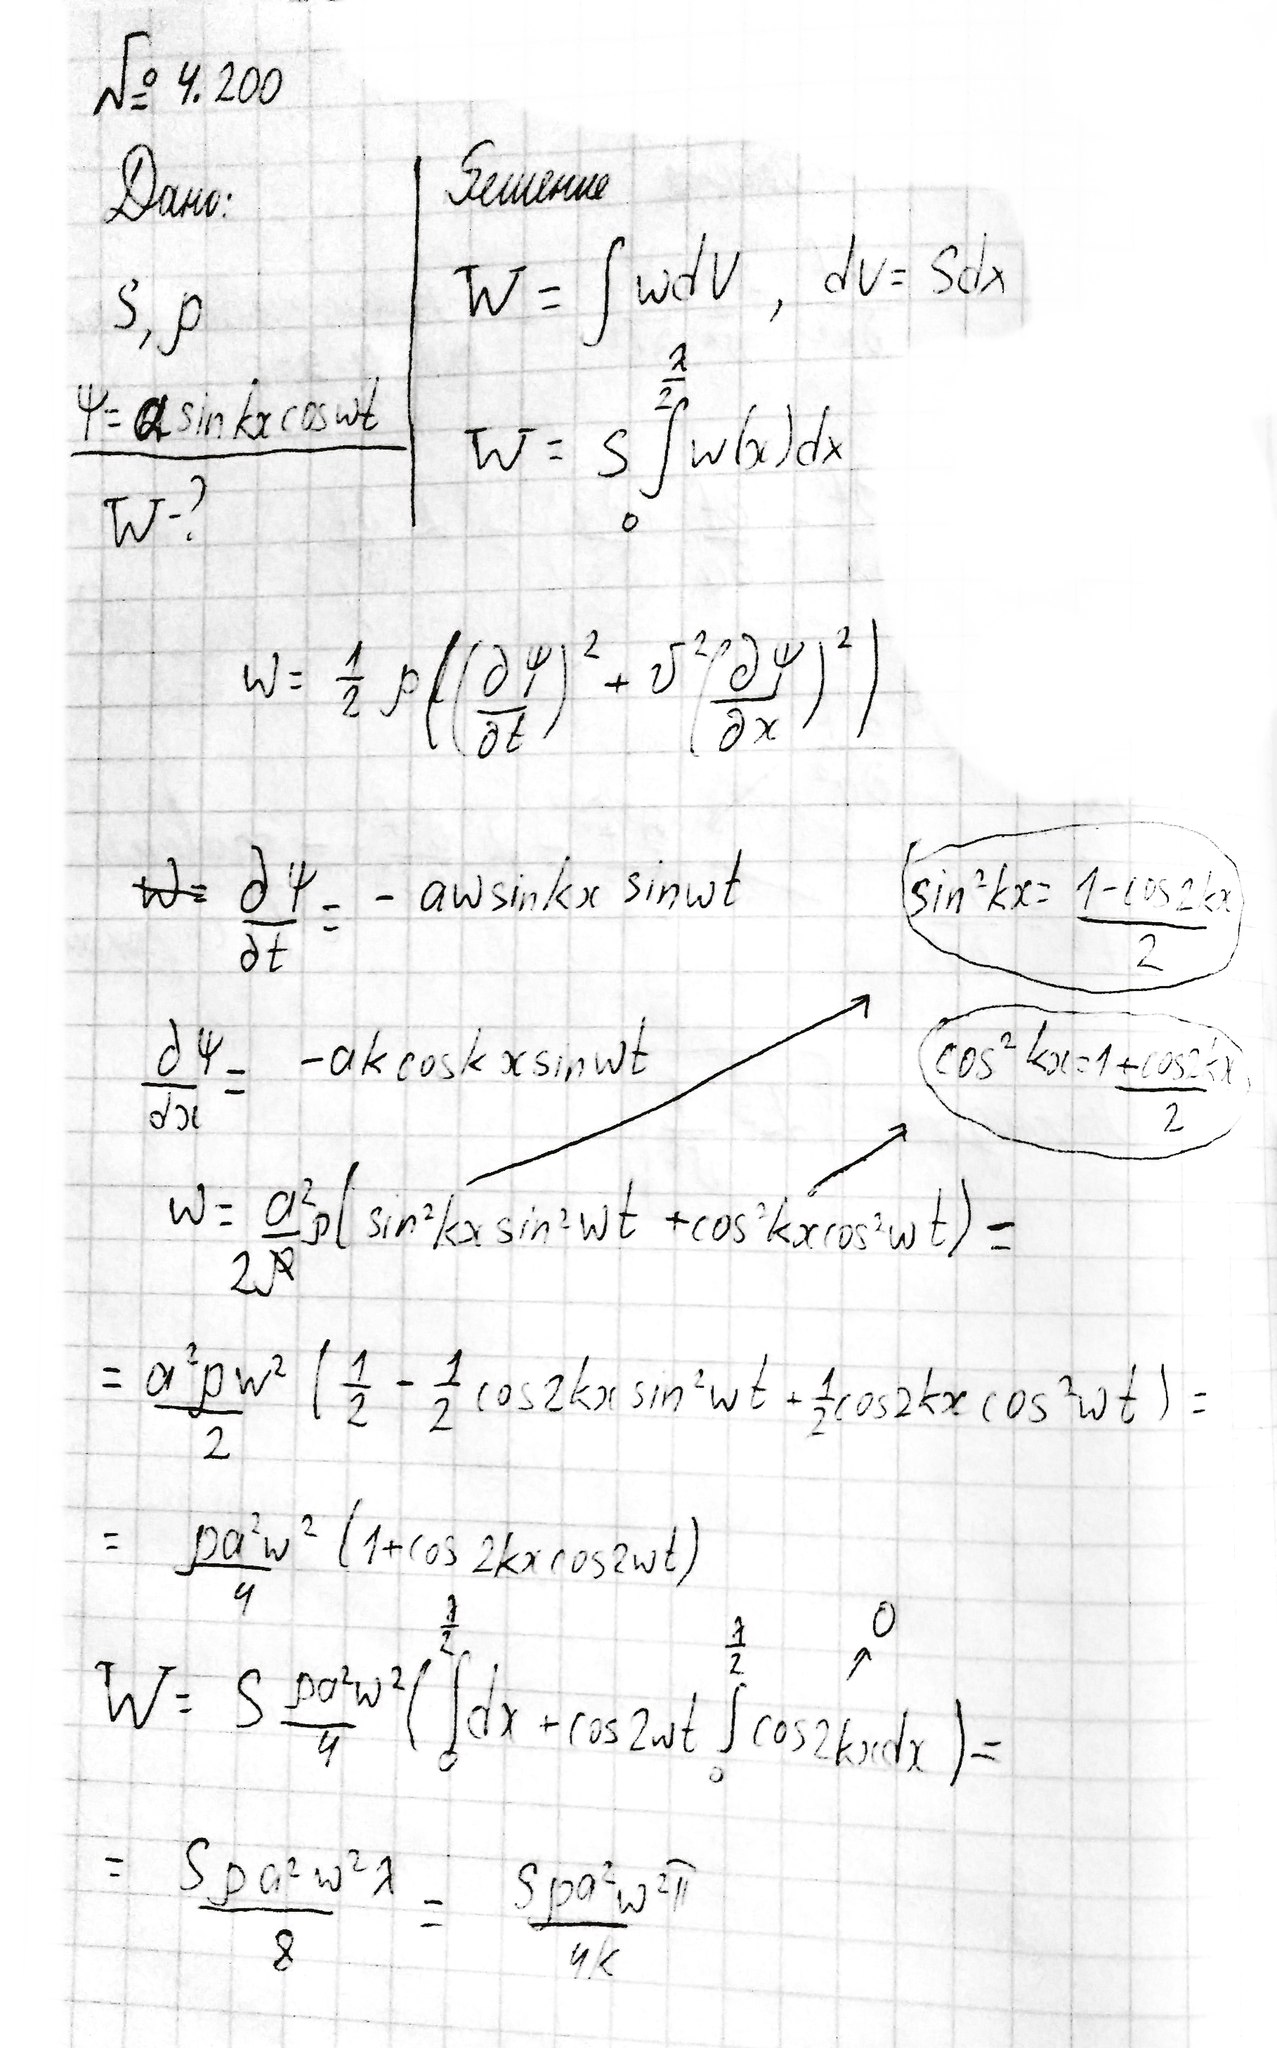 № 4.200
Дано:
S, ρ
Ψ = a sin kx cos ωt
W - ?
Решение
W = ∫ w dV , dV = S dx
W = S ∫₀^(λ/2) w(x) dx
w = 1/2 ρ((∂Ψ/∂t)² + v²(∂Ψ/∂x)²)
∂Ψ/∂t = - aω sin kx sin ωt
sin² kx = (1 - cos 2kx)/2
∂Ψ/∂x = -ak cos kx sin ωt
cos² kx = (1 + cos 2kx)/2
w = a²/2 ρ( sin² kx sin² ωt + cos² kx cos² ωt) =
= a²ρω²/2 ( 1/2 - 1/2 cos 2kx sin² ωt + 1/2 cos 2kx cos² ωt ) =
= ρa²ω²/4 (1 + cos 2kx cos 2ωt)
W = S ρa²ω²/4 ( ∫₀^(λ/2) dx + cos 2ωt ∫₀^(λ/2) cos 2kx dx ) = ↗ 0
= Sρa²ω²λ/8 = Sρa²ω²π/4k